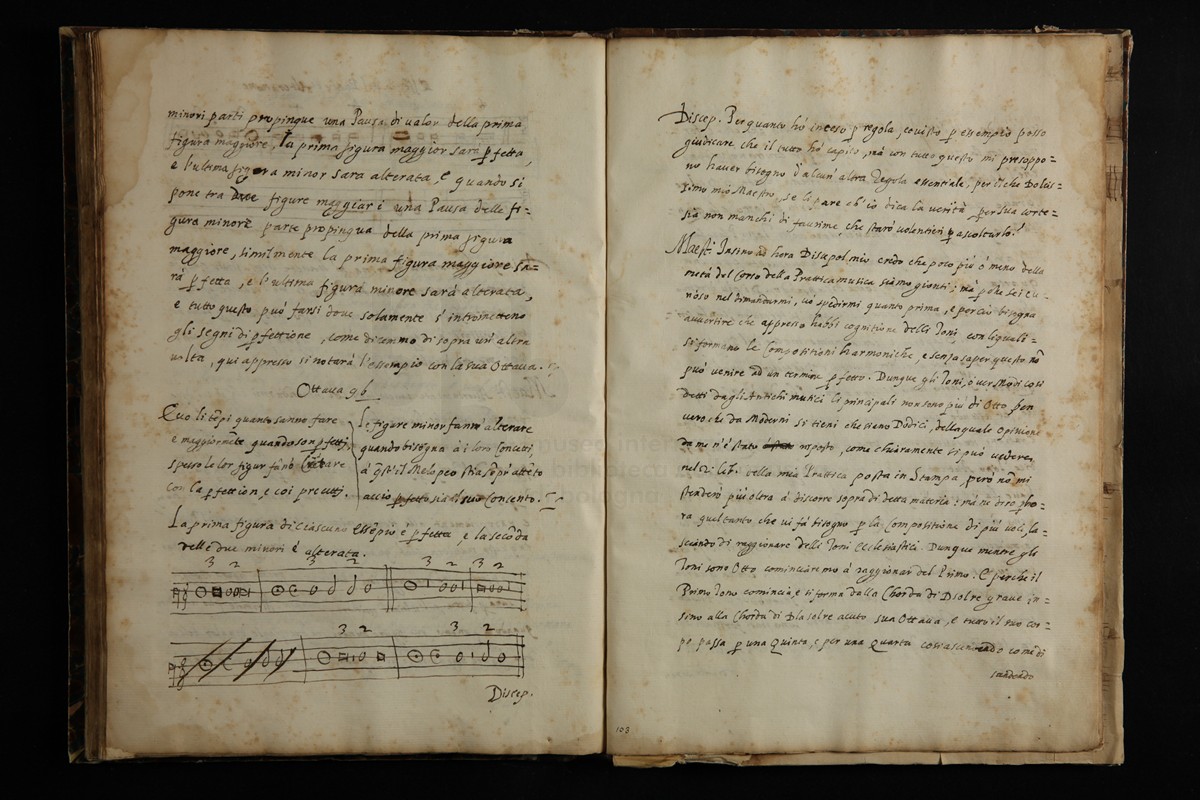 minori parti propinque una Pausa di valor della prima
figura maggiore, la prima figura maggior sarà pfetta,
e l'ultima figura minor sarà alterata, e quando si
pone tra due figure maggiori una Pausa delle fi=
gure minore parte propinqua della prima figura
maggiore, similmente la prima figura maggiore sa=
rà pfetta, e l'ultima figura minore sarà alterata,
e tutto questo può farsi dove solamente s'intrometteno
gli segni di pfettione, come dicemmo di sopra un'altra
volta, qui appresso si notarà l'essempio con la sua Ottava.
Ottava 96
li tepi quanto sanno fare
e maggiormete quando son pfetti,
spesso le lor figur fanno
con la pfettion, e coi
Le figure minor fanno alterare
quando bisogna à i loro Conceti,
il Melopeo stia sopr'
acciò pfetto sia il suo Concento.
La prima figura di ciascuno Essepio è pfetta, e la secoda
delle due minori è alterata.
3 2 3 2 3 2 3 2
3 2 3 2
Discep.
Discep. Per quanto hò inteso p regola, e visto p essempio posso
giudicare che il tutto hò capito, mà con tutto questo mi presuppo=
no haver bisogno d'alcun'altra Regola essenciale, per il che Dolcis=
simo mio Maestro, se li pare ch'io dica la verità per sua corte=
sia non manchi di favirime che starò volentieri p ascoltarlo.
Maest. Insino ad hora Discepol mio credo che poco più ò meno della
metà del Corso della Prattica musica siamo gionti; ma pche sei cu=
rioso nel dimandarmi, vò spedirmi quanto prima, e perciò bisogna
avvertire che appresso habbi cognitione delli Toni, con li quali=
si formano le Compositioni harmoniche, e senza saper questo no
può venire ad un termine pfetto. Dunque gli Toni, ò ver Modi così
detti dagli Antichi musici li principali non sono più di Otto, ben
vero che da Moderni si tieni che siano Dodici, della quale Opinione
da me n'è stato risposto, come chiaramente si può vedere,
nel 2: lib. della mia Prattica posta in Stampa, però no mi
stenderò più oltra à discorre sopra di detta materia; ma ne dirò p ho=
ra quel tanto che vi fà bisogno p la Compositione di più voci, la=
sciando di raggionare delli Toni Ecclesiastici. Dunque mentre gli
Toni sono Otto cominciaremo à raggionar del Primo. E perche il
Primo Tono comincia, e si forma dalla Chorda di Dsolre grave in=
sino alla Chorda di Dlasolre acuto sua Ottava, e tutto il suo cor=
po passa p una Quinta, e per una Quarta così ascendendo come di
scendendo
103